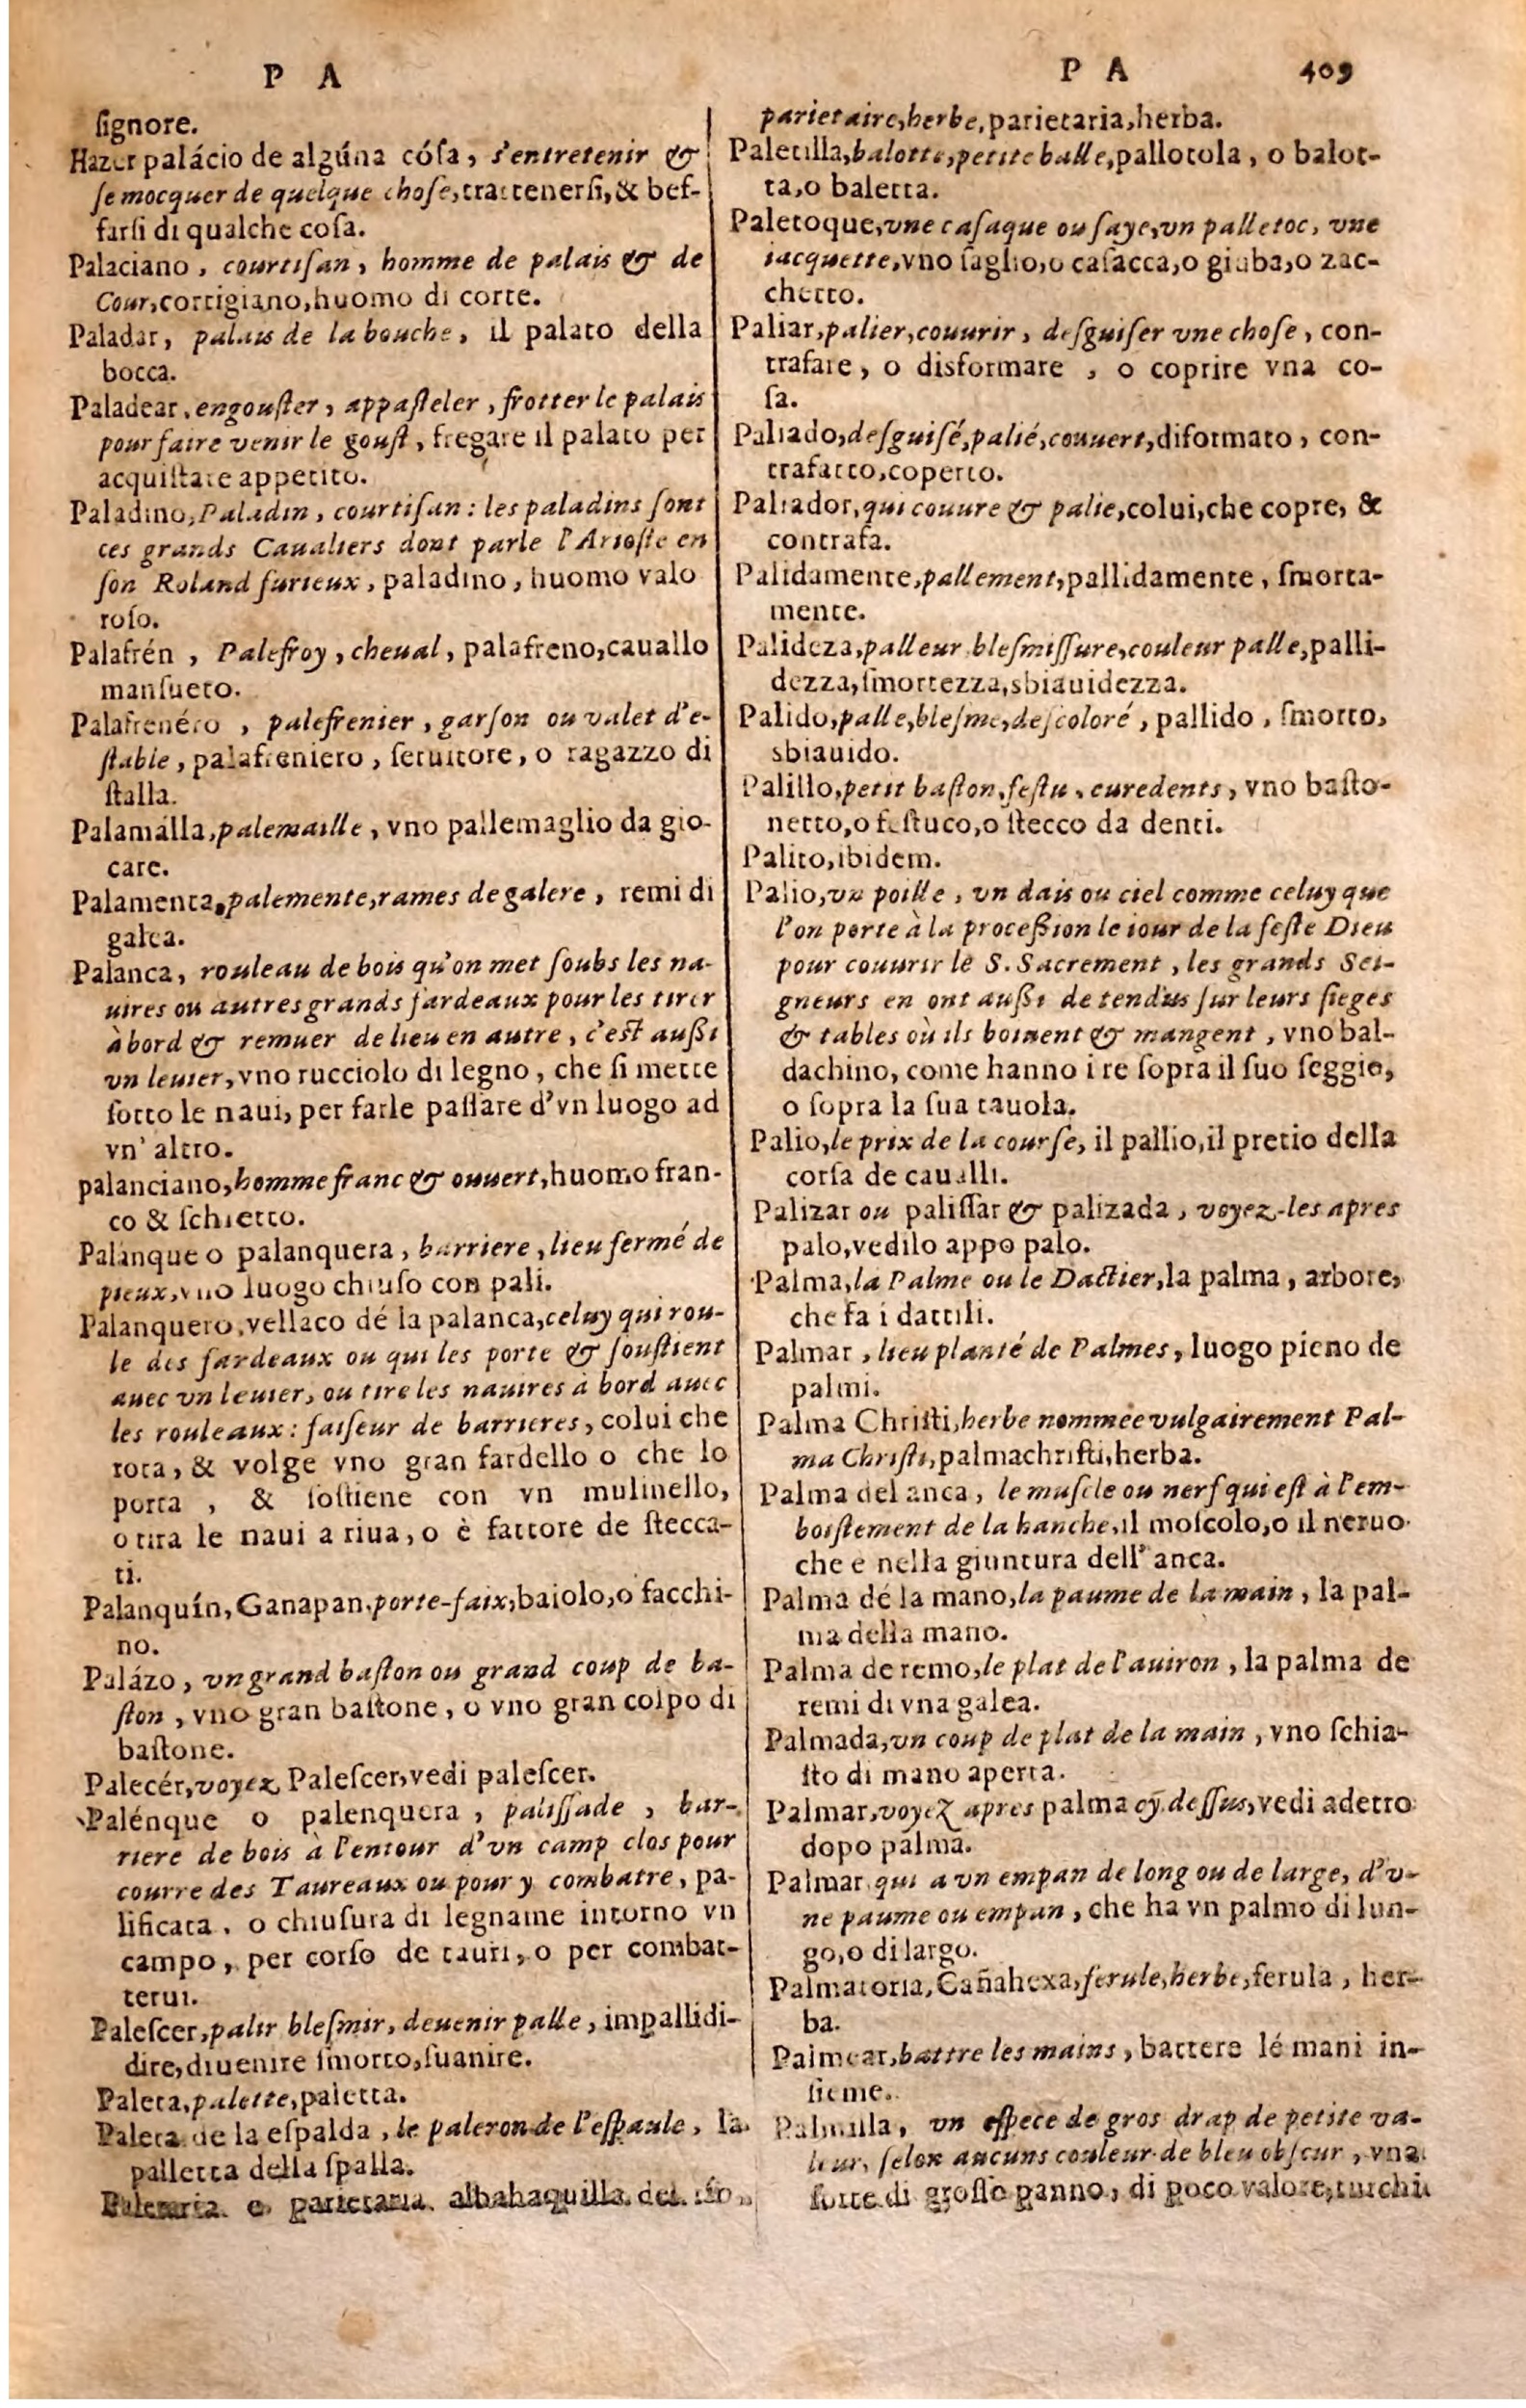 P A
ſignore.
Hazer palácio de algúna cóſa, s'entretenir &
ſe mocquer de quelque choſe, trattenerſi, & bef-
farſi di qualche coſa.
Palaciano, courtiſan, homme de palais & de
Cour, cortigiano, huomo di corte.
Paladar, palais de la bouche, il palato della
bocca.
Paladear, engouſter, appaſteler, frotter le palais
pour faire venir le gouſt, fregare il palato per
acquiſtare appetito.
Paladino, Paladin, courtiſan: les paladins ſont
ces grands Caualiers dont parle l'Arioſte en
ſon Roland furieux, paladino, huomo valo
roſo.
Palafrén, Palefroy, cheual, palafreno, cauallo
manſueto.
Palafrenéro, palefrenier, garſon ou valet d'e-
ſtable, palafreniero, ſeruitore, o ragazzo di
ſtalla.
Palamálla, palemaille, vno pallemaglio da gio-
care.
Palamenta, palemente, rames de galere, remi di
galea.
Palanca, rouleau de bois qu'on met ſoubs les na-
uires ou autres grands fardeaux pour les tirer
à bord & remuer de lieu en autre, c'eſt außi
vn leuier, vno rucciolo di legno, che ſi mette
ſotto le naui, per farle paſſare d'vn luogo ad
vn' altro.
palanciano, homme franc & ouuert, huomo fran-
co & ſchietto.
Palánque o palanquera, barriere, lieu fermé de
pieux, vno luogo chiuſo con pali.
Palanquero, vellaco dé la palanca, celuy qui rou-
le des fardeaux ou qui les porte & ſouſtient
auec vn leuier, ou tire les nauires à bord auec
les rouleaux: faiſeur de barrieres, colui che
rota, & volge vno gran fardello o che lo
porta, & ſoſtiene con vn mulinello,
o tira le naui a riua, o è fattore de ſtecca-
ti.
Palanquín, Ganapan, porte-faix, baiolo, o facchi-
no.
Palázo, vn grand baſton ou grand coup de ba-
ſton, vno gran baſtone, o vno gran colpo di
baſtone.
Palecér, voyez Paleſcer, vedi paleſcer.
Palénque o palenquera, paliſſade, bar-
riere de bois à l'entour d'vn camp clos pour
courre des Taureaux ou pour y combatre, pa-
lificata, o chiuſura di legname intorno vn
campo, per corſo de tauri, o per combat-
terui.
Paleſcer, palir bleſmir, deuenir palle, impallidi-
dire, diuenire ſmorto, ſuanire.
Paleta, palette, paletta.
Paleta de la eſpalda, le paleron de l'eſpaule, la
palletta della ſpalla.
Paletaria o parietaria albahaquilla del rio,
P A 409
parietaire, herbe, parietaria, herba.
Paletilla, balotte, petite balle, pallotola, o balot-
ta, o baletta.
Paletoque, vne caſaque ou ſaye, vn palletoc, vne
iacquette, vno ſaglio, o caſacca, o giuba, o zac-
chetto.
Paliar, palier, couurir, deſguiſer vne choſe, con-
trafare, o disformare, o coprire vna co-
ſa.
Paliado, deſguiſé, palié, couuert, diformato, con-
trafatto, coperto.
Paliador, qui couure & palie, colui, che copre, &
contrafa.
Palidamente, pallement, pallidamente, ſmorta-
mente.
Palideza, palleur, bleſmiſſure, couleur palle, palli-
dezza, ſmortezza, sbiauidezza.
Palido, palle, bleſme, deſcoloré, pallido, ſmorto,
sbiauido.
Palillo, petit baſton, feſtu, curedents, vno baſto-
netto, o feſtuco, o ſtecco da denti.
Palito, ibidem.
Palio, vn poille, vn dais ou ciel comme celuy que
l'on porte à la proceßion le iour de la feſte Dieu
pour couurir le S. Sacrement, les grands Sei-
gneurs en ont außi de tendus ſur leurs ſieges
& tables où ils boiuent & mangent, vno bal-
dachino, come hanno i re ſopra il ſuo ſeggio,
o ſopra la ſua tauola.
Palio, le prix de la courſe, il pallio, il pretio della
corſa de caualli.
Palizar ou paliſſar & palizada, voyez-les apres
palo, vedilo appo palo.
Palma, la Palme ou le Dactier, la palma, arbore,
che fa i dattili.
Palmar, lieu planté de Palmes, luogo pieno de
palmi.
Palma Chriſti, herbe nommee vulgairement Pal-
ma Chriſti, palmachriſti, herba.
Palma del anca, le muſcle ou nerf qui eſt à l'em-
boiſtement de la hanche, il moſcolo, o il neruo
che e nella giuntura dell' anca.
Palma dé la mano, la paume de la main, la pal-
ma della mano.
Palma de remo, le plat de l'auiron, la palma de
remi di vna galea.
Palmada, vn coup de plat de la main, vno ſchia-
ffo di mano aperta.
Palmar, voyez apres palma cy deſſus, vedi adetro
dopo palma.
Palmar qui a vn empan de long ou de large, d'v-
ne paume ou empan, che ha vn palmo di lun-
go, o di largo.
Palmatoria, Cañahexa, ferule, herbe, ferula, her-
ba.
Palmear, battre les mains, battere lé mani in-
ſieme.
Palmilla, vn eſpece de gros drap de petite va-
leur, ſelon aucuns couleur de bleu obſcur, vna
ſorte di groſſo panno, di poco valore, turchi